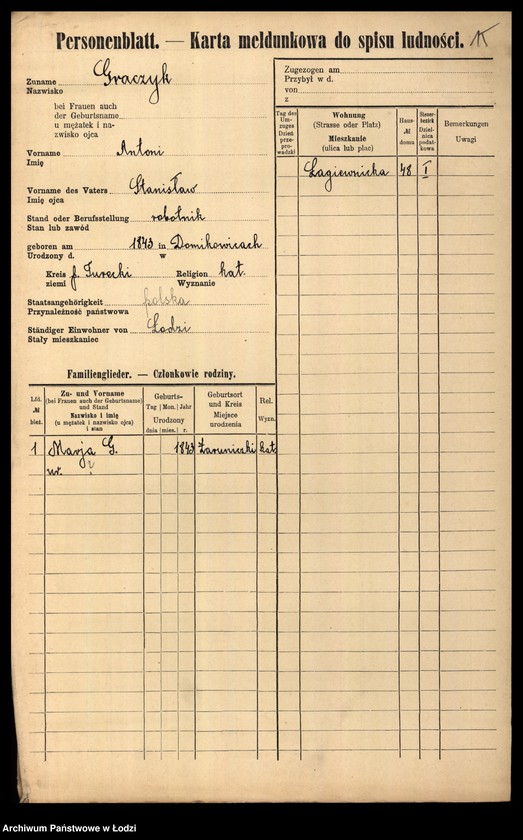 Personenblatt. — Karta meldunkowa do spisu ludności. 1K
Zuname Graczyk
Nazwisko
bei Frauen auch
der Geburtsname
u mężatek i na-
zwisko ojca
Vorname Antoni
Imię
Vorname des Vaters Stanisław
Imię ojca
Stand oder Berufsstellung robotnik
Stan lub zawód
geboren am 1843 in Domikowicach
Urodzony d. w
Kreis p. Turecki Religion kat.
ziemi Wyznanie
Staatsangehörigkeit polska
Przynależność państwowa
Ständiger Einwohner von Łodzi
Stały mieszkaniec
Zugezogen am
Przybył w d.
von
z
Tag des Um-
zuges
Dzień
prze-
prowadzki
Wohnung
(Strasse oder Platz)
Mieszkanie
(ulica lub plac)
Haus-
№
domu
Steuer-
bezirk
Dziel-
nica
podat-
kowa
Bemerkungen
Uwagi
Łagiewnicka 48 I
Familienglieder. — Członkowie rodziny.
Lfd.
№
bież.
Zu- und Vorname
(bei Frauen auch der Geburtsname)
und Stand
Nazwisko i imię
(u mężatek i nazwisko ojca)
i stan
Geburts-
Tag Mon. Jahr
Urodzony
dnia mies. r.
Geburtsort
und Kreis
Miejsce
urodzenia
Rel.
Wyzn.
1 Marja G. 1843 Zaruniczki kat.
ur. ?
Archiwum Państwowe w Łodzi